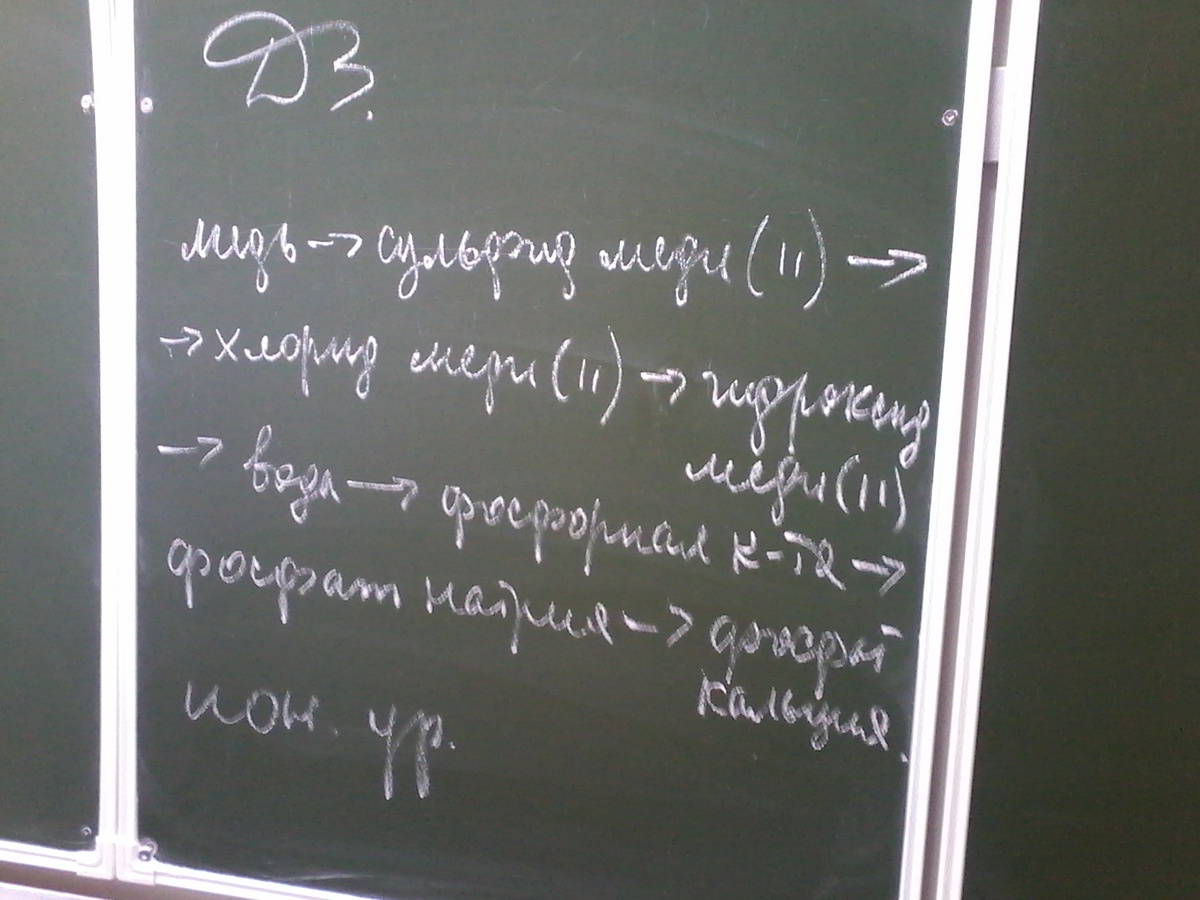 ДЗ.
медь → сульфид меди (II) →
→ хлорид меди (II) → гидроксид
меди (II)
→ вода → фосфорная к-та →
фосфат натрия → фосфат
кальция.
ион. ур.